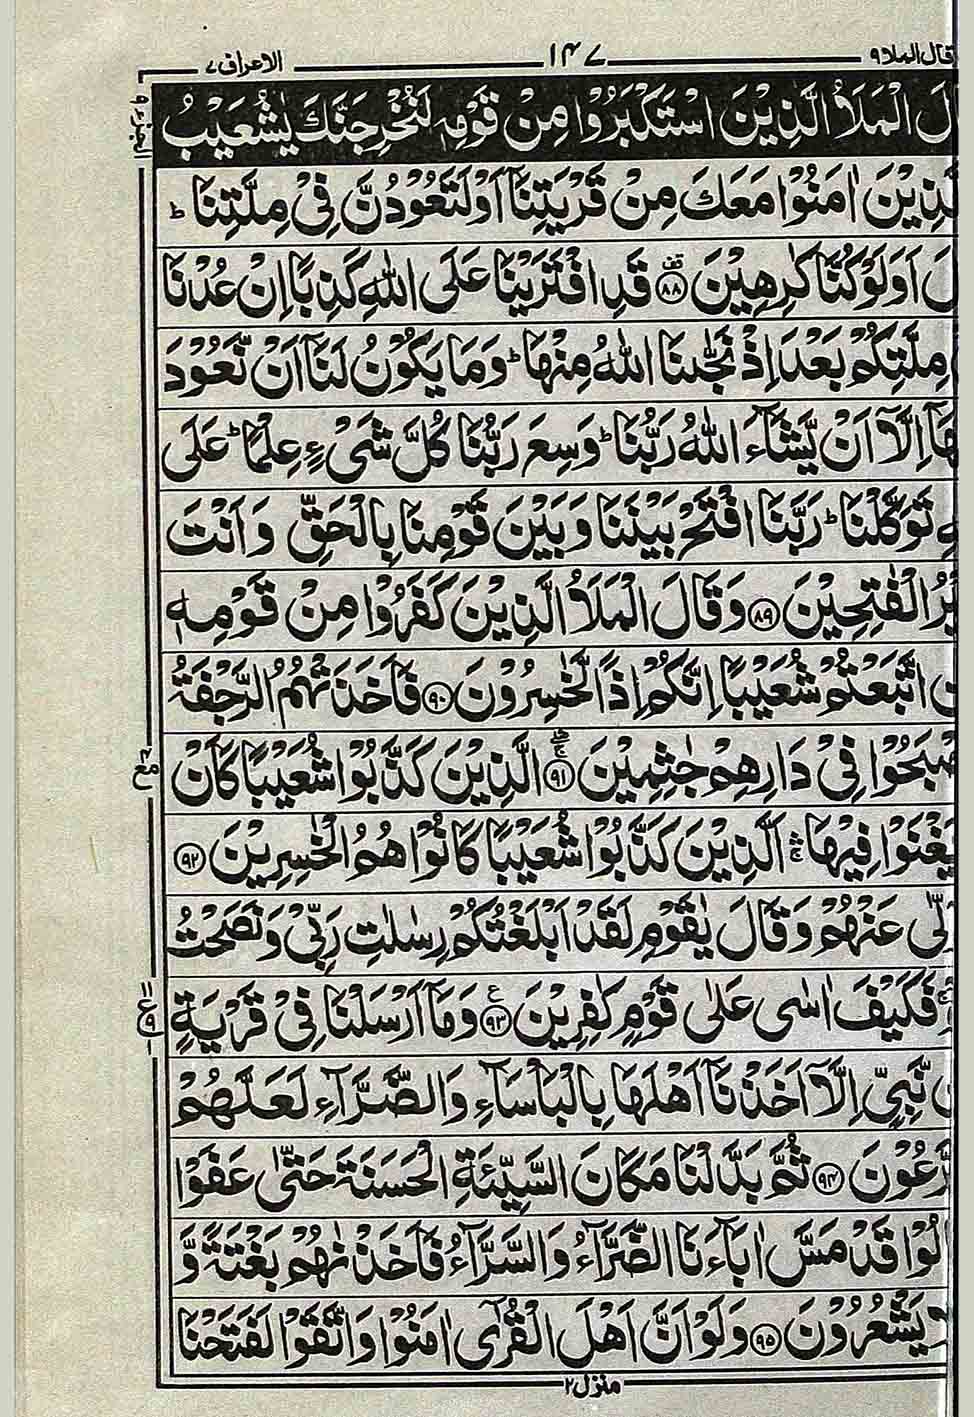 قال الملا ۹ ۱۴۷ الاعراف ۷
الْمَلَاُ الَّذِيْنَ اسْتَكْبَرُوْا مِنْ قَوْمِهٖ لَنُخْرِجَنَّكَ يٰشُعَيْبُ
اٰمَنُوْا مَعَكَ مِنْ قَرْيَتِنَاۤ اَوْ لَتَعُوْدُنَّ فِيْ مِلَّتِنَا ؕ
اَوَلَوْ كُنَّا كٰرِهِيْنَ ۟ قف ﴿۸۸﴾ قَدِ افْتَرَيْنَا عَلَى اللّٰهِ كَذِبًا اِنْ عُدْنَا
مِلَّتِكُمْ بَعْدَ اِذْ نَجّٰىنَا اللّٰهُ مِنْهَا ؕ وَمَا يَكُوْنُ لَنَاۤ اَنْ نَّعُوْدَ
اِلَّاۤ اَنْ يَّشَآءَ اللّٰهُ رَبُّنَا ؕ وَسِعَ رَبُّنَا كُلَّ شَيْءٍ عِلْمًا ؕ عَلَى
تَوَكَّلْنَا ؕ رَبَّنَا افْتَحْ بَيْنَنَا وَبَيْنَ قَوْمِنَا بِالْحَقِّ وَاَنْتَ
الْفٰتِحِيْنَ ﴿۸۹﴾ وَقَالَ الْمَلَاُ الَّذِيْنَ كَفَرُوْا مِنْ قَوْمِهٖ
اتَّبَعْتُمْ شُعَيْبًا اِنَّكُمْ اِذًا لَّخٰسِرُوْنَ ﴿۹۰﴾ فَاَخَذَتْهُمُ الرَّجْفَةُ
فِيْ دَارِهِمْ جٰثِمِيْنَ ﴿۹۱﴾ الَّذِيْنَ كَذَّبُوْا شُعَيْبًا كَاَنْ
يَغْنَوْا فِيْهَا ۛ اَلَّذِيْنَ كَذَّبُوْا شُعَيْبًا كَانُوْا هُمُ الْخٰسِرِيْنَ ﴿۹۲﴾
عَنْهُمْ وَقَالَ يٰقَوْمِ لَقَدْ اَبْلَغْتُكُمْ رِسٰلٰتِ رَبِّيْ وَنَصَحْتُ
فَكَيْفَ اٰسٰى عَلٰى قَوْمٍ كٰفِرِيْنَ ﴿۹۳﴾ ع وَمَاۤ اَرْسَلْنَا فِيْ قَرْيَةٍ
نَّبِيٍّ اِلَّاۤ اَخَذْنَاۤ اَهْلَهَا بِالْبَاْسَآءِ وَالضَّرَّآءِ لَعَلَّهُمْ
﴿۹۴﴾ ثُمَّ بَدَّلْنَا مَكَانَ السَّيِّئَةِ الْحَسَنَةَ حَتّٰى عَفَوْا
قَدْ مَسَّ اٰبَآءَنَا الضَّرَّآءُ وَالسَّرَّآءُ فَاَخَذْنٰهُمْ بَغْتَةً وَّ
يَشْعُرُوْنَ ﴿۹۵﴾ وَلَوْ اَنَّ اَهْلَ الْقُرٰۤى اٰمَنُوْا وَاتَّقَوْا لَفَتَحْنَا
منزل ۲